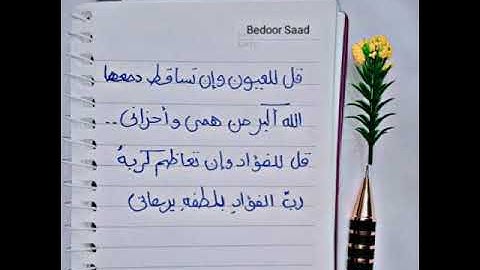 Bedoor Saad
قل للعيون وإن تساقط دمعها
الله أكبر من همي وأحزاني ..
قل للفؤاد وإن تعاظم كربهُ
ربّ الفؤادِ بلطفهِ يرعاني